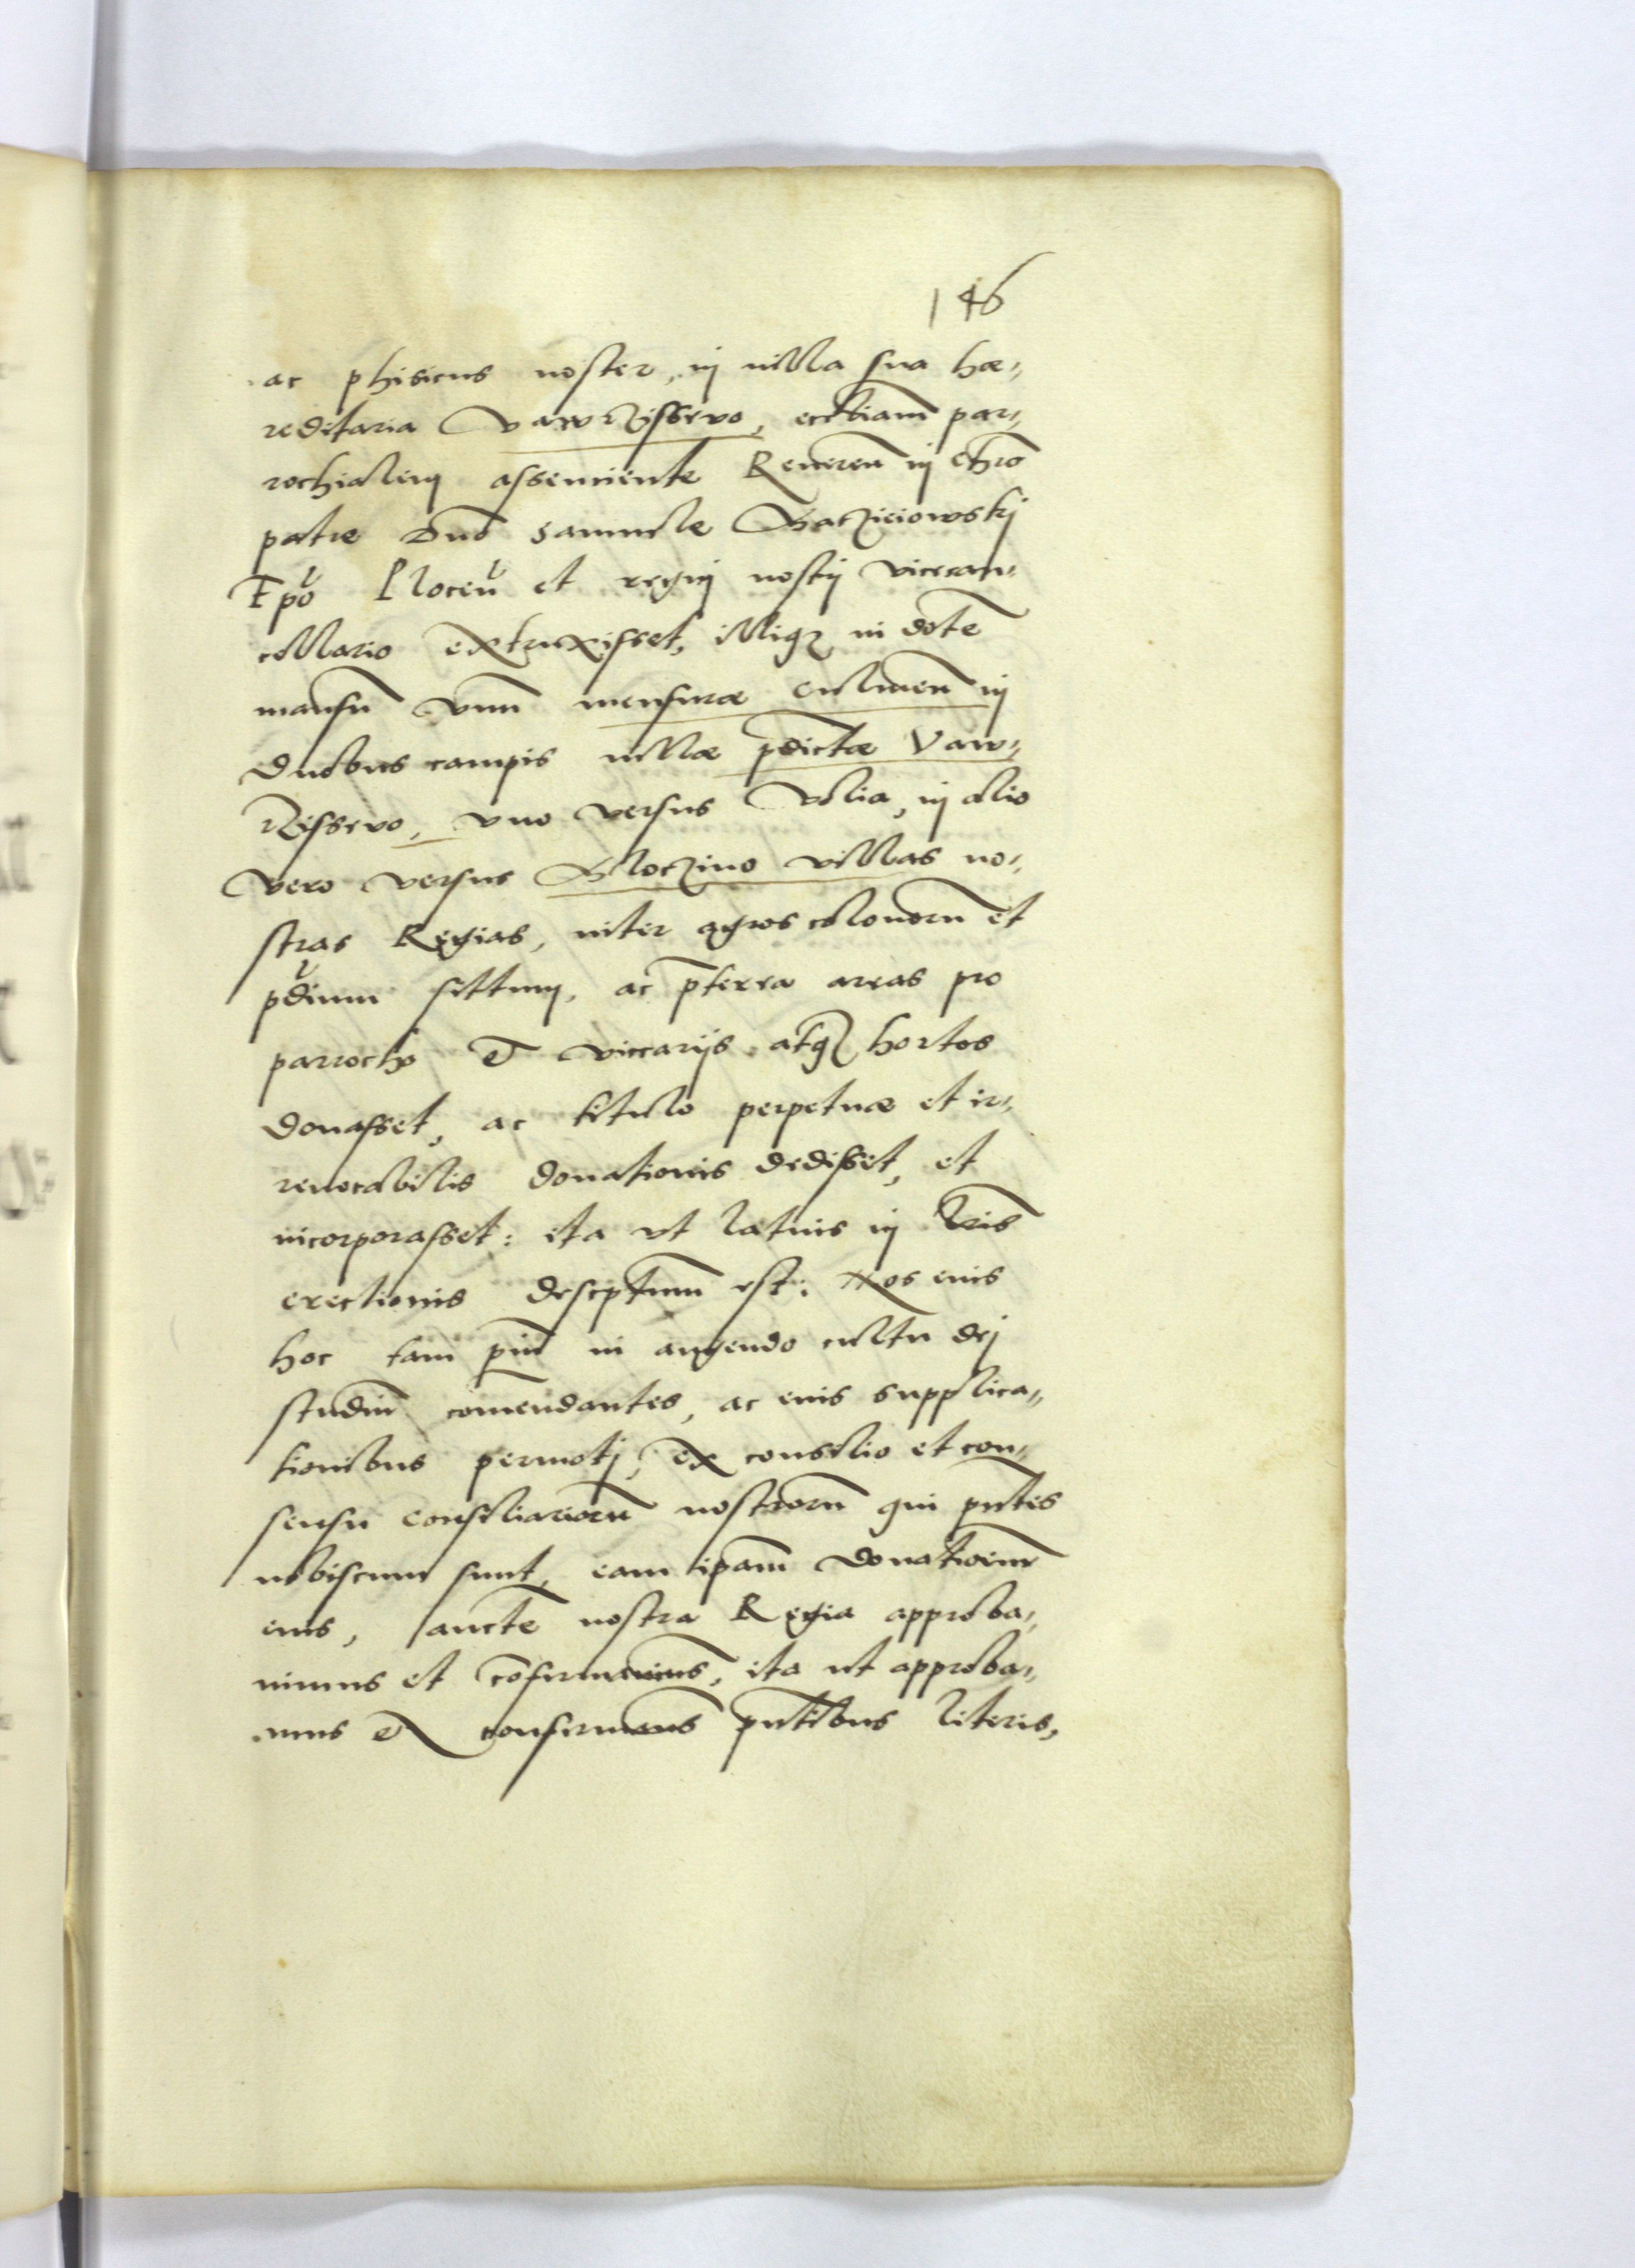 146
ac phisicus noster, in villa sua hæ-
reditaria Vawrzissevo, eccl̄iam par-
rochialem assenciente Reveren̄ in chr̄o
patre Dn̄o Samuele Maczieiowskÿ
Ep̄o Plocen̄ et regnj nostrj vicecan-
cellario extruxisset, illiq3 in dotē
mansū vnū mensuræ culmen̄ in
duobus campis villæ p̄dictæ Vaw-
rzissevo, vno versus Volia, in alio
vero versus Gloczino villas no-
stras Regias, inter agros colonorū et
p̄dium sittum, ac p̄terea areas pro
parrocho et viccarijs atq3 hortos
donasset, ac titulo perpetuæ et ir-
revocabilis donationis dedisset, et
incorporasset: ita vt latius in l̄ris
erectionis descptum̄ est: Nos eius
hoc tam piū in augendo cultu dej
studiū com̄endantes, ac eius supplica-
tionibus permotj, ex consilio et con-
sensu consiliariorū nostrorū qui pn̄tes
nobiscum sunt, eam ip̄am donationem̄
eius, aucte̅ nostra Regia approba-
uimus et cōfirmauimus, ita vt approba-
mus et confirmam̄s pn̄tibus literis,